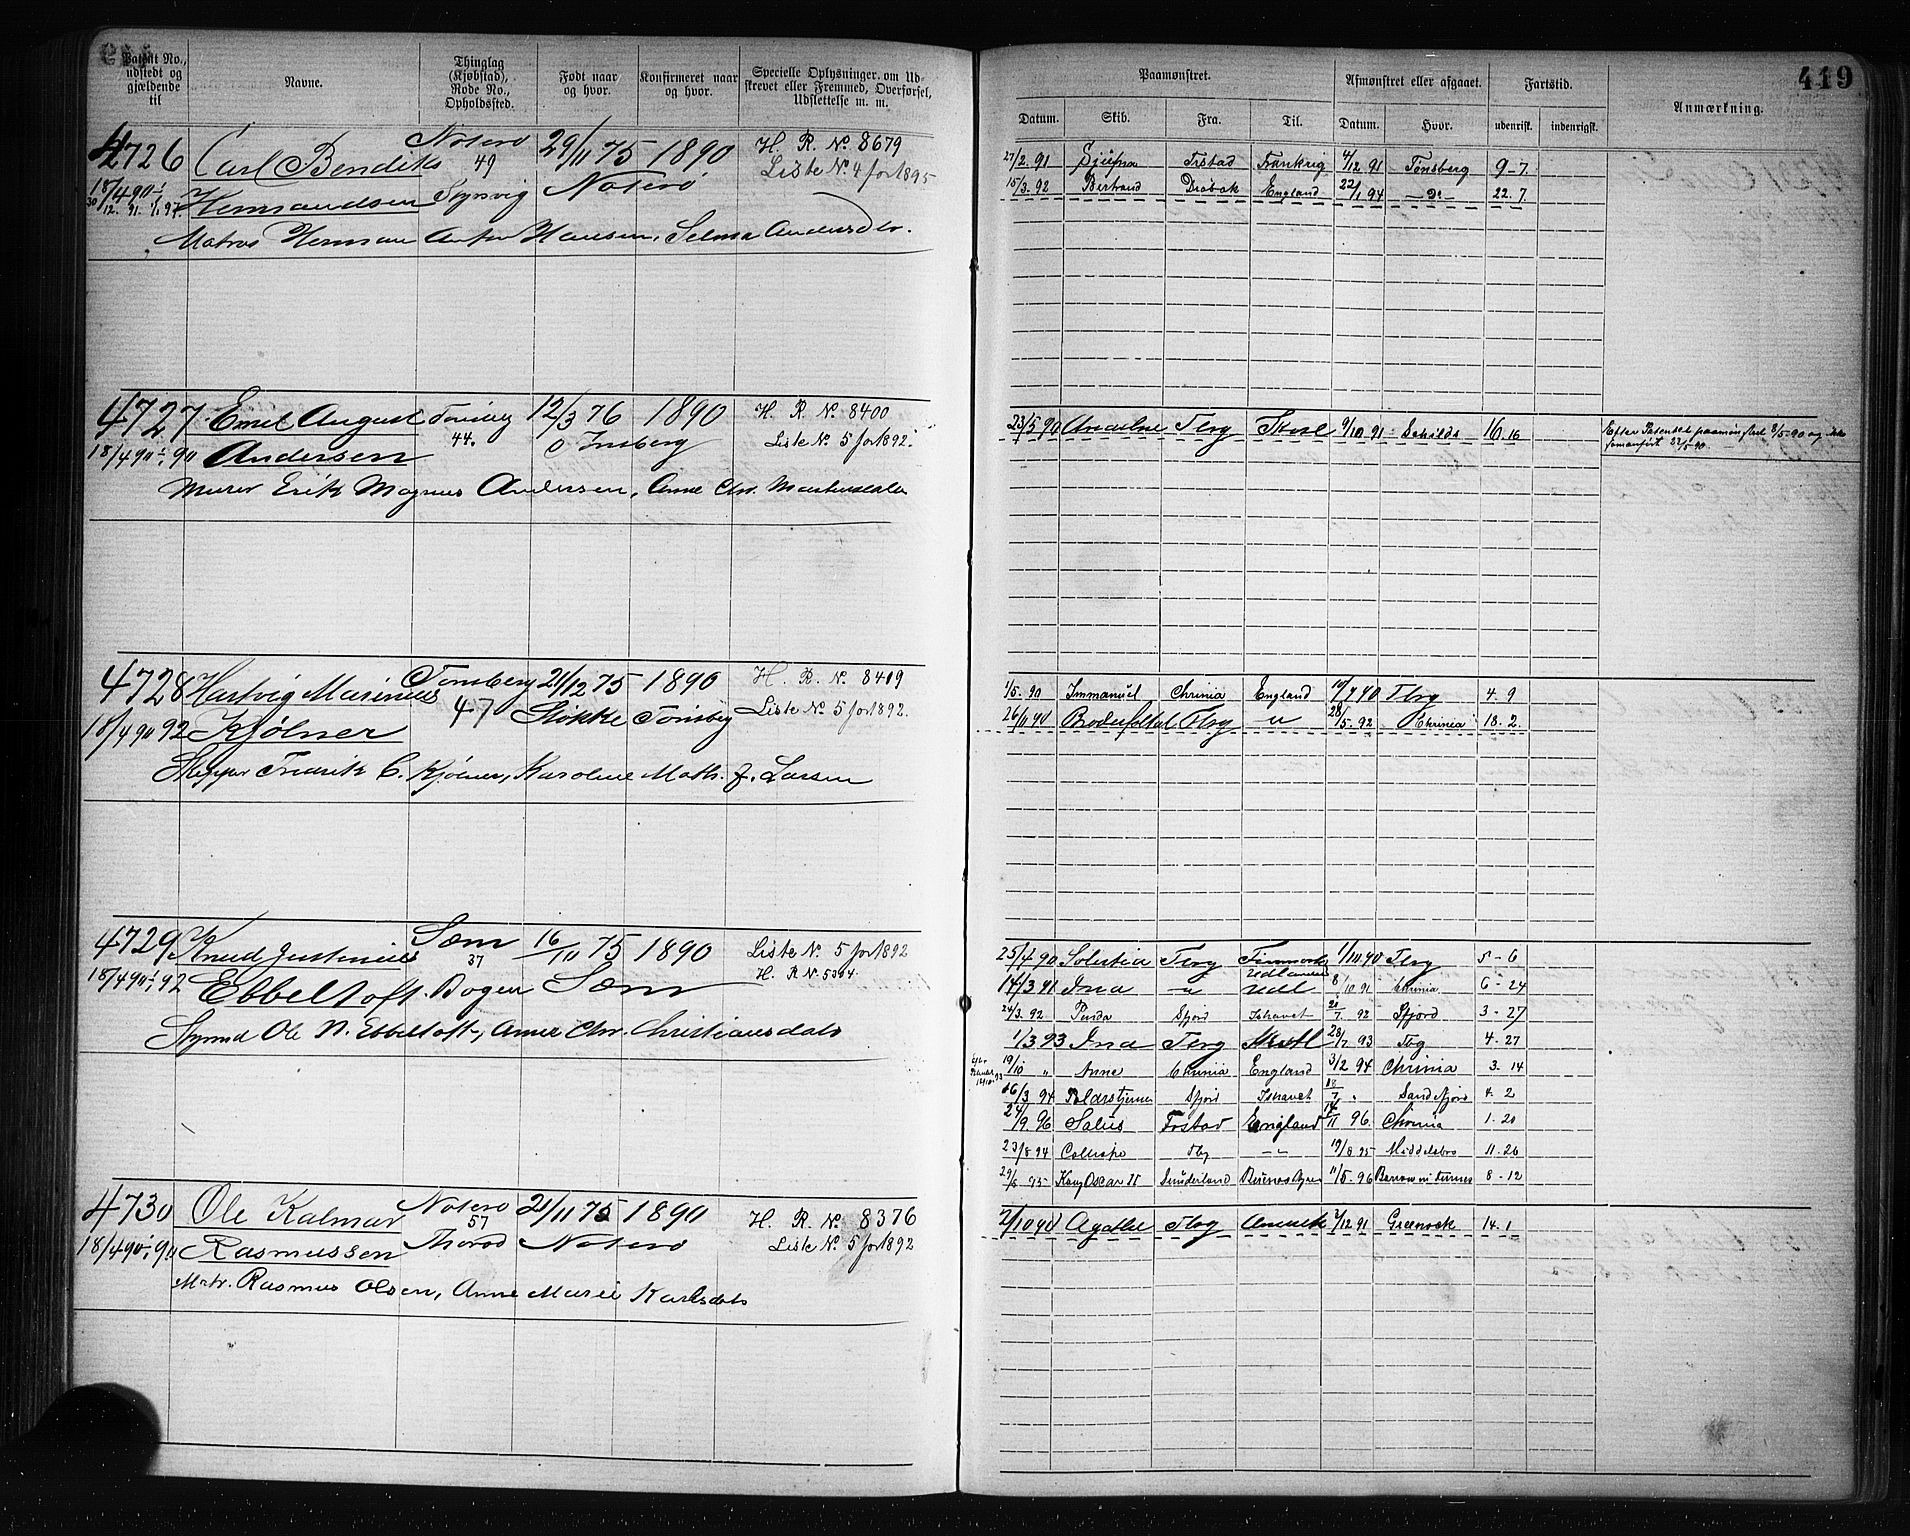 419
Patent No., udstedt og gjældende til
Navne.
Thinglag (Kjøbstad), Rode No., Opholdssted.
Født naar og hvor.
Konfirmeret naar og hvor.
Specielle Oplysninger. om Udskrevet eller Fremmed, Overførsel, Udslettelse m. m.
Paamønstret.
Afmønstret eller afgaaet.
Fartstid.
Anmærkning.
Datum. Skib. Fra. Til. Datum. Hvor. udenrigsk. indenrigsk.
4726 Carl Bendik Noterø 29/11 75 1890 H. R. No. 8679
49 Liste No. 4 for 1895
18/4 90 Hermandsen Noterø
Matros Herman Anton Hansen, Selma Andersdtr.
27/2. 91 Frankrig 4/12 91 Tønsberg 9-7.
15/3. 92 Bertrand Drøbak England 22/1 94 — Do — 22.7.
4727 Emil August Tønsberg 12/3 76 1890 H. R. No. 8400
44. Tønsberg Liste No. 5 for 1892.
18/4 90 Andersen
Murer Erik Magnus Andersen, Anne Chr. Mathisedtr
23/5 90 Tbrg 9/10 91 16.16
4728 Hartvig Marinius Tønsberg 21/12 75 1890 H. R. No. 8409
47 Støkke Tønsbg Liste No. 5 for 1892.
18/4 90 92 Kjølner
Skipper Fredrik C. Kjølner, Karoline Math. f. Larsen
1/5. 90 Immanuel Chrinia England 10/9 90 Tbrg 4. 9
26/11 90 Tbrg — " — 28/5. 92 Chrinia 18. 2.
4729 Knud Justinius Sæm 16/11 75 1890 Liste No. 5 for 1892
37 H. R. No. 5364
18/4 90 92 Ebbeltoft. Bogen Sæm
Styrmd Ole N. Ebbeltoft, Anne Chr. Christiansdatr
25/4 90 Solertia Tbrg Finmark 1/10 90 Tbrg 5-6
Udlandet
14/3 91 Ina — " — Udl 8/10 91 Chrinia 6-24
24/3. 92 Sfjord Ishavet 21/7. 92 Sfjord 3-27
1/3 93 Ina Tbrg 28/7. 93 Tbg 4-27
19/10 " Anne Chrinia England 3/2 94 Chrinia 3. 14
16/3 94 Polarstjernen Sfjord Ishavet 18/7 " Sandefjord 4. 2
24/9. 96 Salus England 14/11 96. Chrinia 1. 20
23/8 94 Calliope Tbg — " — 19/8 95 Middelsbro 11. 26
29/8 95 Kong Oscar II Sunderland Buenos Ayres 11/5. 96 Barrow in Furness 8-12
4730 Ole Kalmar Noterø 21/11 75 1890 H. R. No. 8376
57 Liste No. 5 for 1892
18/4 90 Rasmussen Thorød Noterø
Matr. Rasmus Olsen, Anne Marie Karlsdatr
2/10 90 Agathe Tbrg Amerik 7/12 91 Greenock 14. 1